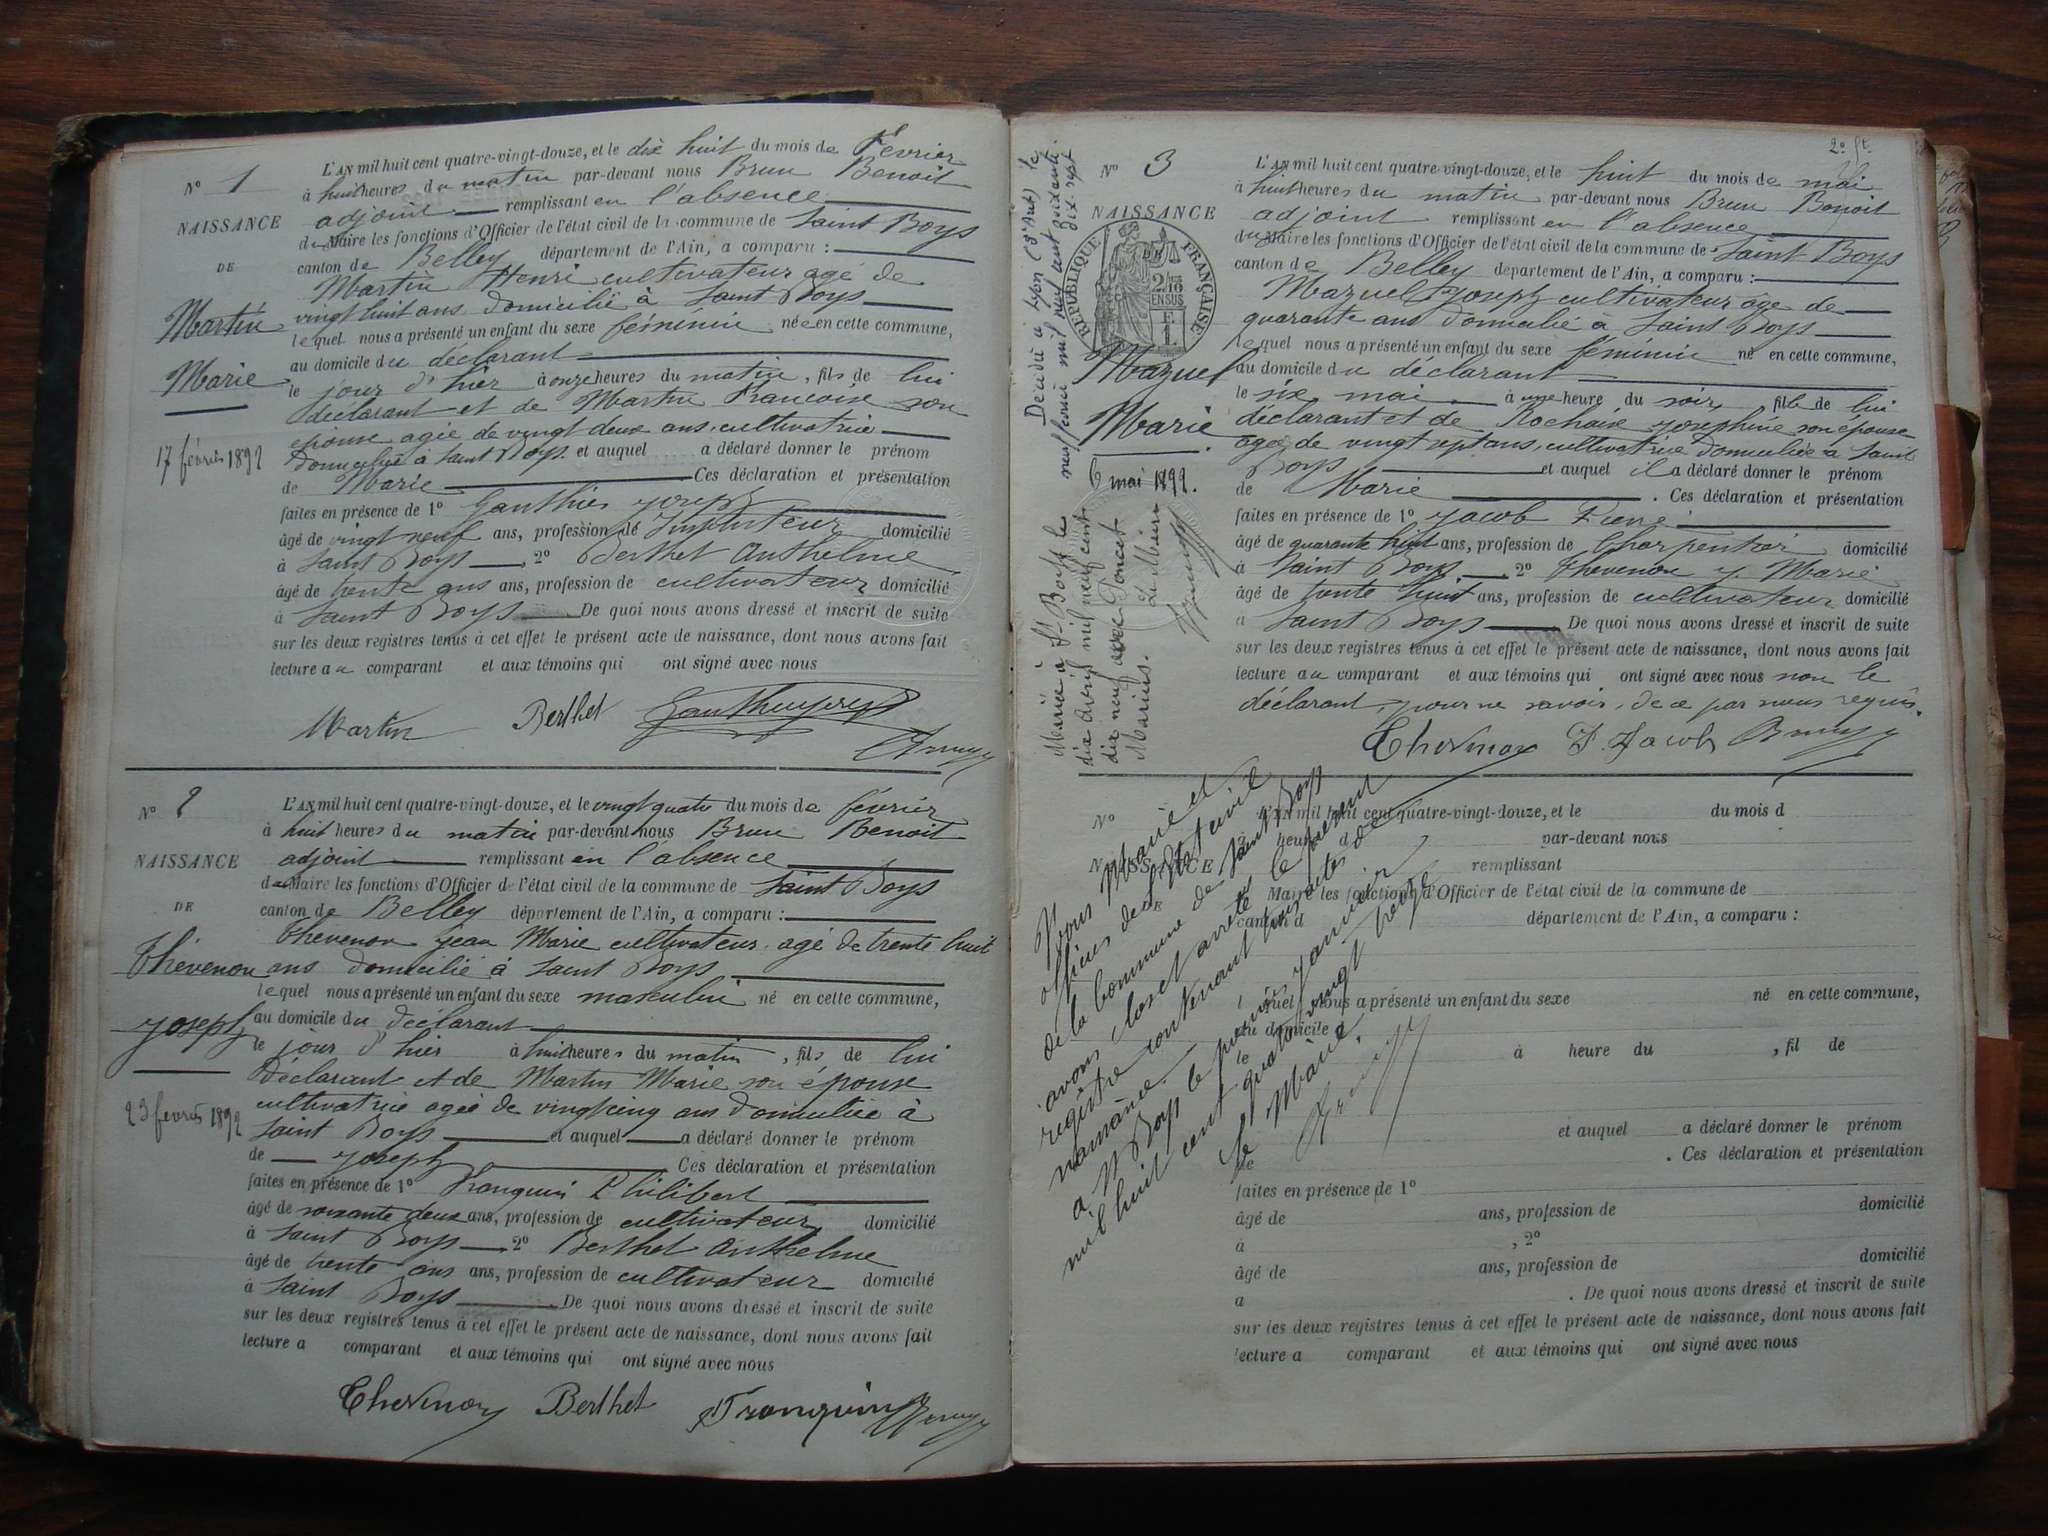 N° 1
NAISSANCE
DE
Martin
Marie
17 février 1892
L'AN mil huit cent quatre-vingt-douze, et le dix huit du mois de Fevrier
à huit heures du matin par-devant nous Brun Benoit
adjoint remplissant en l'absence
du Maire les fonctions d'Officier de l'état civil de la commune de Saint Boys
canton de Belley département de l'Ain, a comparu :
Martin Henri cultivateur agé de
vingt huit ans domicilié à Saint Boys
lequel nous a présenté un enfant du sexe féminin née en cette commune,
au domicile du déclarant
le jour d'hier à onze heures du matin, fils de lui
déclarant et de Martin Francoise son
épouse agée de vingt deux ans, cultivatrice
domiciliée à Saint Boys. et auquel a déclaré donner le prénom
de Marie Ces déclaration et présentation
faites en présence de 1° Gauthier Joseph
âgé de vingt neuf ans, profession de Instituteur domicilié
à Saint Boys 2° Berthet Anthelme
âgé de trente ans ans, profession de cultivateur domicilié
à Saint Boys De quoi nous avons dressé et inscrit de suite
sur les deux registres tenus à cet effet le présent acte de naissance, dont nous avons fait
lecture au comparant et aux témoins qui ont signé avec nous
Martin Berthet
N° 2
NAISSANCE
DE
Thévenon
Joseph
23 fevrier 1892
L'AN mil huit cent quatre-vingt-douze, et le vingt quatre du mois de février
à huit heures du matin par-devant nous Brun Benoit
adjoint remplissant en l'absence
du Maire les fonctions d'Officier de l'état civil de la commune de Saint Boys
canton de Belley département de l'Ain, a comparu :
Thevenon Jean Marie cultivateur agé de trente huit
ans domicilié à Saint Boys
lequel nous a présenté un enfant du sexe masculin né en cette commune,
au domicile du déclarant
le jour d'hier à huit heures du matin, fils de lui
déclarant et de Martin Marie son épouse
cultivatrice agée de vingt cinq ans domiciliée à
Saint Boys et auquel a déclaré donner le prénom
de Joseph Ces déclaration et présentation
faites en présence de 1° Philibert
âgé de soixante deux ans, profession de cultivateur domicilié
à Saint Boys 2° Berthet Anthelme
âgé de trente ans ans, profession de cultivateur domicilié
à Saint Boys De quoi nous avons dressé et inscrit de suite
sur les deux registres tenus à cet effet le présent acte de naissance, dont nous avons fait
lecture a comparant et aux témoins qui ont signé avec nous
Berthet
2e ft.
N° 3
NAISSANCE
RÉPUBLIQUE FRANÇAISE
Mazuel
Marie
6 mai 1892.
Décédée à Lyon (3e Art) le
neuf février mil neuf cent soixante
dix-sept
Mariée à St Boys le
dix avril mil neuf cent
dix neuf avec Poncet
Marius. Le Maire
L'AN mil huit cent quatre-vingt-douze, et le huit du mois de mai
à huit heures du matin par-devant nous Brun Benoit
adjoint remplissant en l'absence
du Maire les fonctions d'Officier de l'état civil de la commune de Saint Boys
canton de Belley département de l'Ain, a comparu :
Mazuel Joseph cultivateur âgé de
quarante ans domicilié à Saint Boys
lequel nous a présenté un enfant du sexe féminin né en cette commune,
au domicile du déclarant
le six mai à une heure du soir, fille de lui
déclarant et de Rochaix Josephine son épouse
agée de vingt sept ans, cultivatrice domiciliée à Saint
Boys et auquel il a déclaré donner le prénom
de Marie . Ces déclaration et présentation
faites en présence de 1° Jacob Pierre
âgé de quarante huit ans, profession de Charpentier domicilié
à Saint Boys 2° Thevenon J. Marie
âgé de trente huit ans, profession de cultivateur domicilié
à Saint Boys De quoi nous avons dressé et inscrit de suite
sur les deux registres tenus à cet effet le présent acte de naissance, dont nous avons fait
lecture au comparant et aux témoins qui ont signé avec nous non le
déclarant, pour ne savoir, de ce par nous requis.
Jacob
N°
NAISSANCE
DE
L'AN mil huit cent quatre-vingt-douze, et le du mois d
heure d par-devant nous
remplissant
Maire les fonctions d'Officier de l'état civil de la commune de
canton d département de l'Ain, a comparu :
l quel nous a présenté un enfant du sexe né en cette commune,
au domicile d
le à heure du , fil de
et auquel a déclaré donner le prénom
de . Ces déclaration et présentation
faites en présence de 1°
âgé de ans, profession de domicilié
à , 2°
âgé de ans, profession de domicilié
a . De quoi nous avons dressé et inscrit de suite
sur les deux registres tenus à cet effet le présent acte de naissance, dont nous avons fait
lecture a comparant et aux témoins qui ont signé avec nous
Nous Maire et
officier de l'Etat civil
de la Commune de Saint Boys
avons clos et arrêté le présent
registre contenant trois actes de
naissance.
a St Boys le premier janvier
mil huit cent quatre vingt treize
Le Maire.